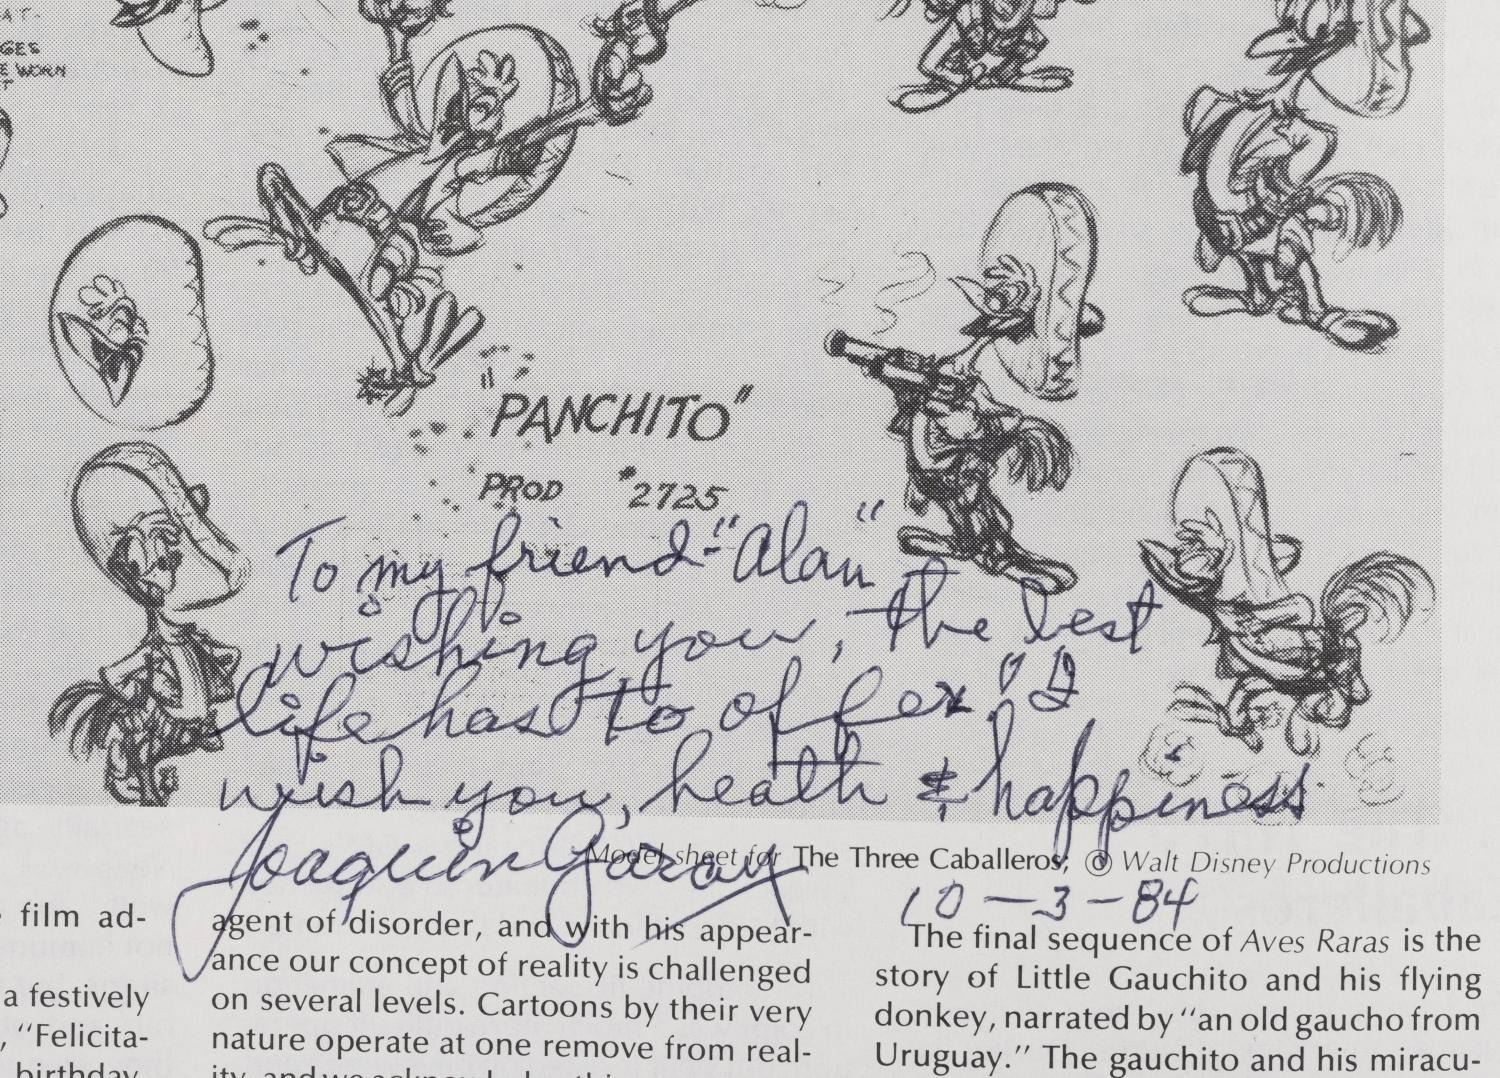 AT-
GES
E WORN
T
"PANCHITO"
PROD #2725
To my friend "Alan"
wishing you, the best
life has to offer" I
wish you, heath & happiness
Joaquin Garay
Model sheet for The Three Caballeros; © Walt Disney Productions
10-3-84
film ad-
a festively
, "Felicita-
birthday
agent of disorder, and with his appear-
ance our concept of reality is challenged
on several levels. Cartoons by their very
nature operate at one remove from real-
ity, and we
The final sequence of Aves Raras is the
story of Little Gauchito and his flying
donkey, narrated by "an old gaucho from
Uruguay." The gauchito and his miracu-